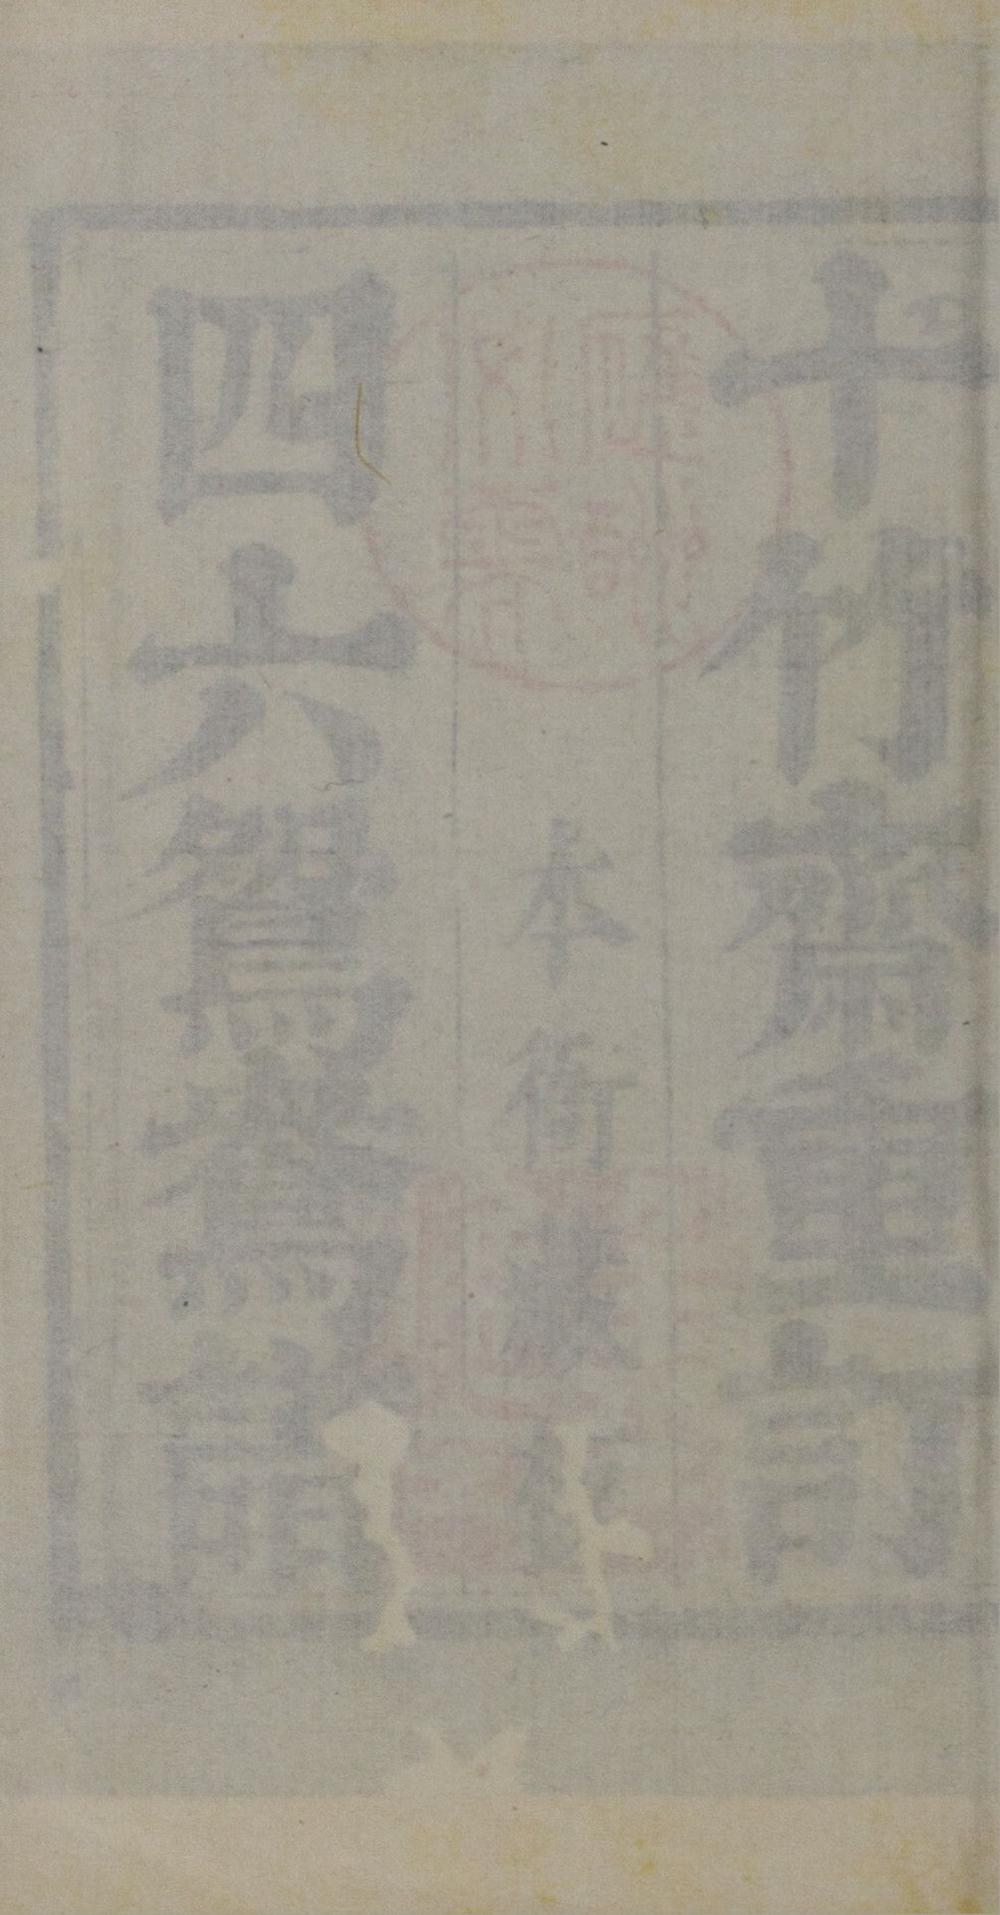 十竹齋重訂
本衙藏板
四六鴛鴦譜